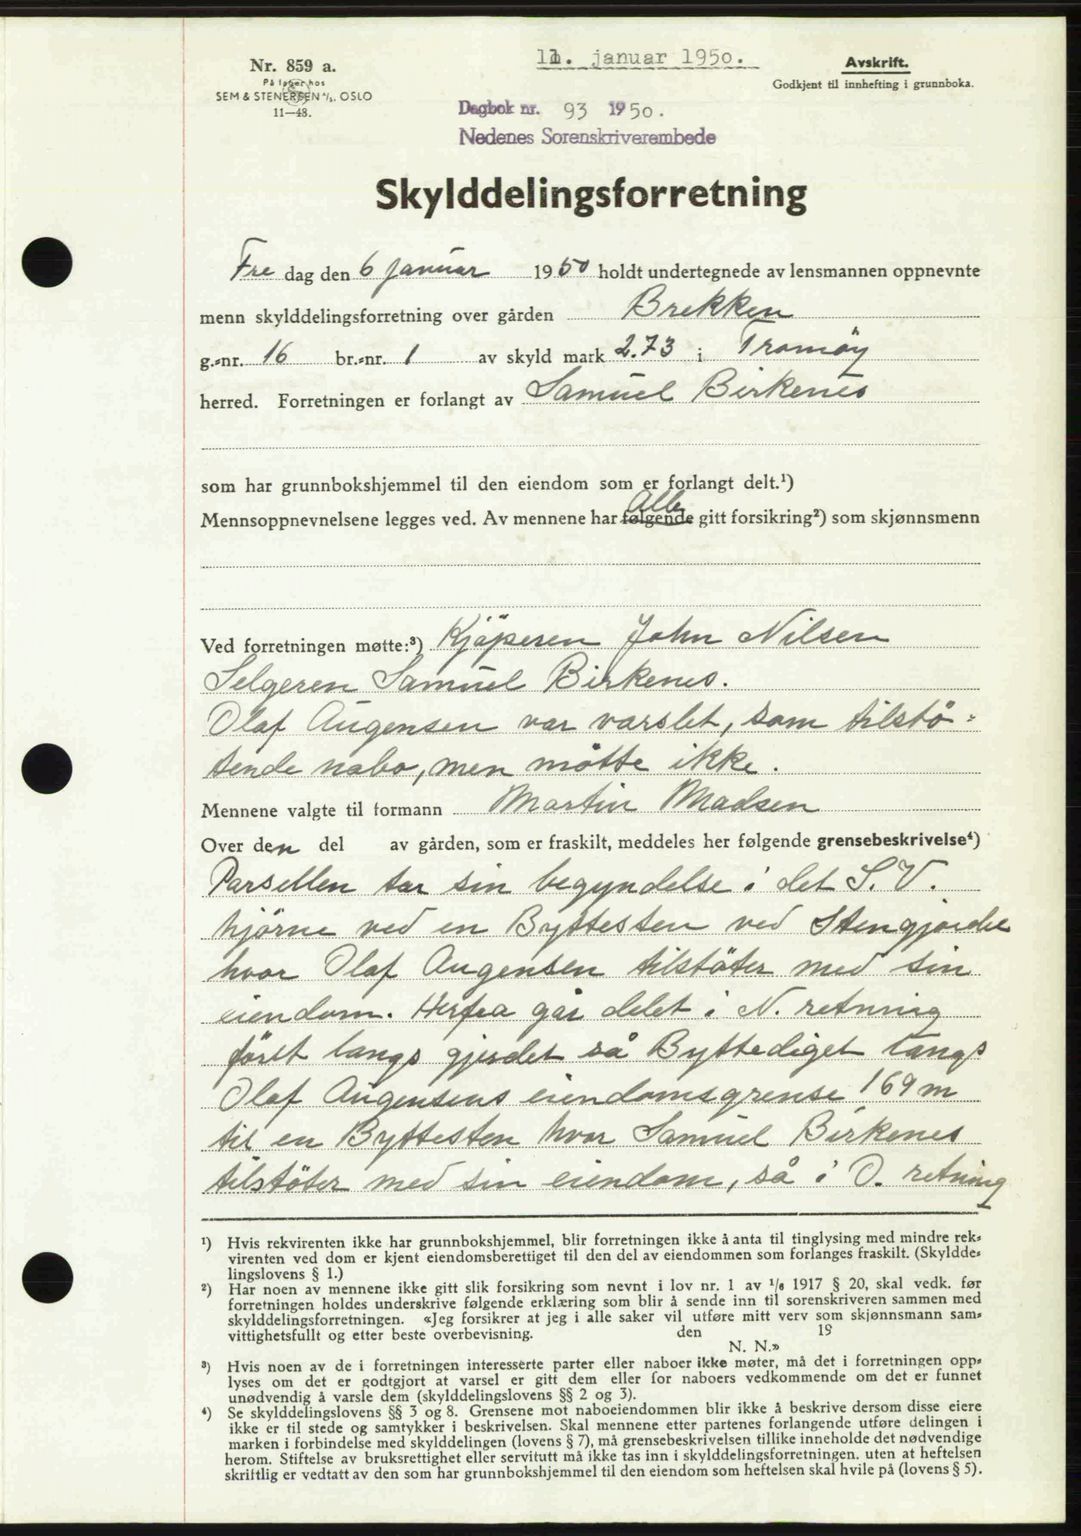 Nr. 859 a.
På lager hos
SEM & STENERSEN A/S. OSLO
11—48.
11. januar 1950.
Avskrift.
Godkjent til innhefting i grunnboka.
Dagbok nr. 93 1950.
Nedenes Sorenskriverembede
Skylddelingsforretning
Fre dag den 6 januar 1950 holdt undertegnede av lensmannen oppnevnte
menn skylddelingsforretning over gården Brekken
g.-nr. 16 br.-nr. 1 av skyld mark 2.73 i Tromøy
herred. Forretningen er forlangt av Samuel Birkenes
som har grunnbokshjemmel til den eiendom som er forlangt delt.¹)
Alle
Mennsoppnevnelsene legges ved. Av mennene har følgende gitt forsikring²) som skjønnsmenn
Ved forretningen møtte:³) Kjöperen John Nilsen
Selgeren Samuel Birkenes.
Olaf Augensen var varslet, som tilstö-
tende nabo, men mötte ikke.
Mennene valgte til formann Martin Madsen
Over den del av gården, som er fraskilt, meddeles her følgende grensebeskrivelse⁴)
Parsellen tar sin begyndelse i det S.V.
hjörne ved en Byttesten ved Stengjerdet
hvor Olaf Augensen tilstöter med sin
eiendom. Herfra går delet i N. retning
först langs gjerdet så Byttediget langs
Olaf Augensens eiendomsgrense 169 m
til en Byttesten hvor Samuel Birkenes
tilstöter med sin eiendom, så i O. retning
¹) Hvis rekvirenten ikke har grunnbokshjemmel, blir forretningen ikke å anta til tinglysing med mindre rek-
virenten ved dom er kjent eiendomsberettiget til den del av eiendommen som forlanges fraskilt. (Skyldde-
lingslovens § 1.)
²) Har noen av mennene ikke gitt slik forsikring som nevnt i lov nr. 1 av ¹/₆ 1917 § 20, skal vedk. før
forretningen holdes underskrive følgende erklæring som blir å sende inn til sorenskriveren sammen med
skylddelingsforretningen. «Jeg forsikrer at jeg i alle saker vil utføre mitt verv som skjønnsmann sam-
vittighetsfullt og etter beste overbevisning. den 19
N. N.»
³) Hvis noen av de i forretningen interesserte parter eller naboer ikke møter, må det i forretningen opp-
lyses om det er godtgjort at varsel er gitt dem eller for naboers vedkommende om det er funnet
unødvendig å varsle dem (skylddelingslovens §§ 2 og 3).
⁴) Se skylddelingslovens §§ 3 og 8. Grensene mot naboeiendommen blir ikke å beskrive dersom disse eiere
ikke er til stede og samtykker i beskrivelsen. Skal mennene etter partenes forlangende utføre delingen i
marken i forbindelse med skylddelingen (lovens § 7), må grensebeskrivelsen tillike inneholde det nødvendige
herom. Stiftelse av bruksrettighet eller servitutt må ikke tas inn i skylddelingsforretningen, uten at heftelsen
skriftlig er vedtatt av den som har grunnbokshjemmel til den eiendom som heftelsen skal hvile på (lovens § 5).